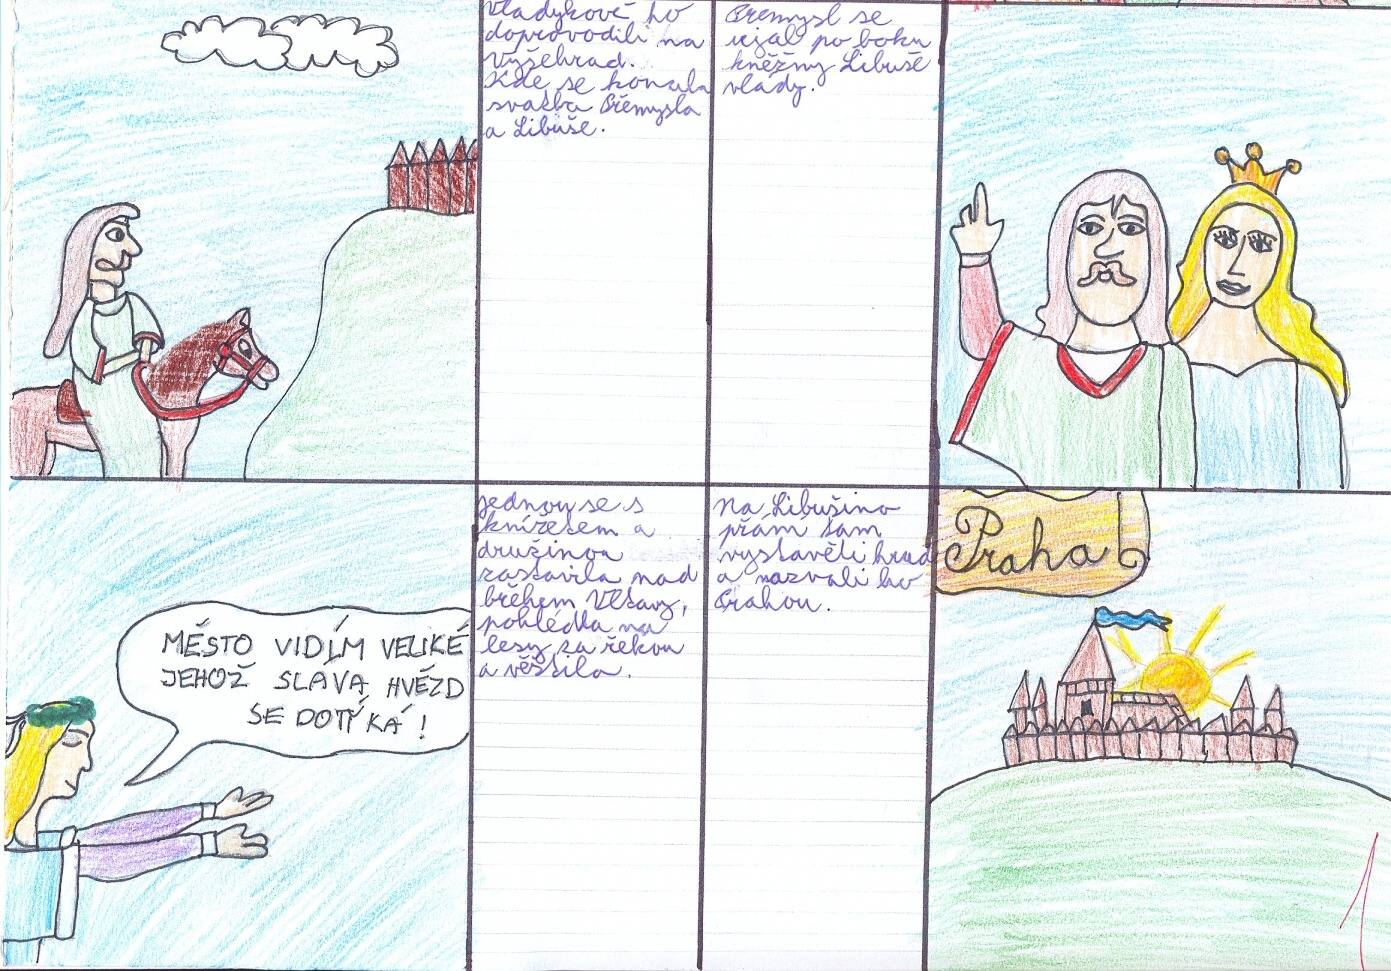 Vladykové ho
doprovodili na
Vyšehrad.
Kde se konala
svatba Přemysla
a Libuše.
Přemysl se
ujal po boku
kněžny Libuše
vlády.
MĚSTO VIDÍM VELIKÉ
JEHOŽ SLÁVA HVĚZD
SE DOTÝKÁ!
jednou se s
knížetem a
družinou
zastavila nad
během Vltavy,
pohlédla na
lesy za řekou
a věštila.
Na Libušino
přání tam
vystavěli hrad
a nazvali ho
Prahou.
Praha
1